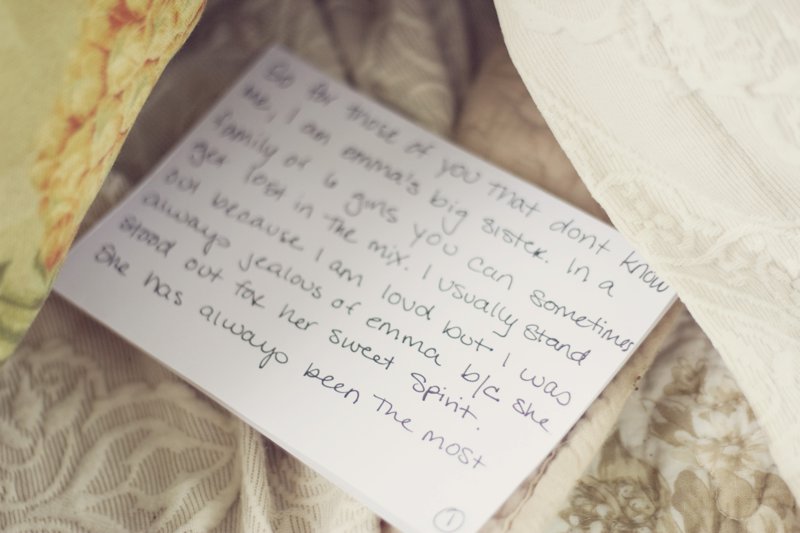 So for those of you that dont know
me, I am emma's big sister. In a
family of 6 girls you can sometimes
get lost in the mix. I usually stand
out because I am loud but I was
always jealous of emma b/c she
stood out for her sweet spirit.
She has always been the most
1